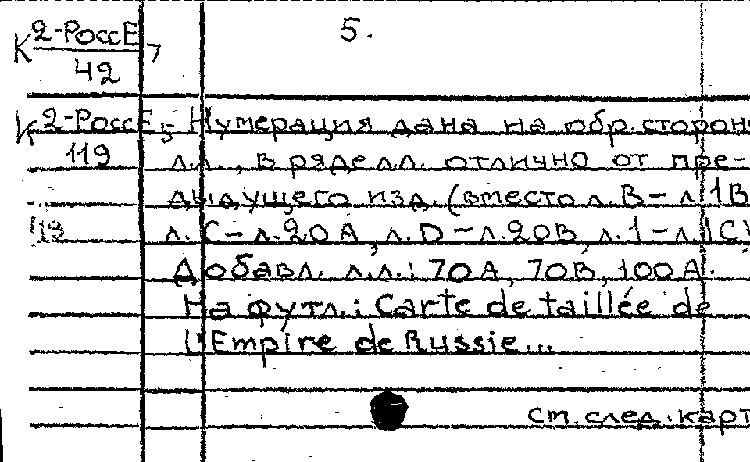 К 2-РоссЕ/42 7
5.
К 2-РоссЕ/119 5
Нумерация дана на обр. сторон
л.л., в ряде лл. отлично от пре-
дыдущего изд. (вместо л. В - л. 1В
л. С - л. 20А, л. D - л. 20В, л. 1 - л. 1С)
Добавл. л.л.: 70А, 70В, 100А.
На футл.: Carte de taillée de
l'Empire de Russie...
См. след. карт